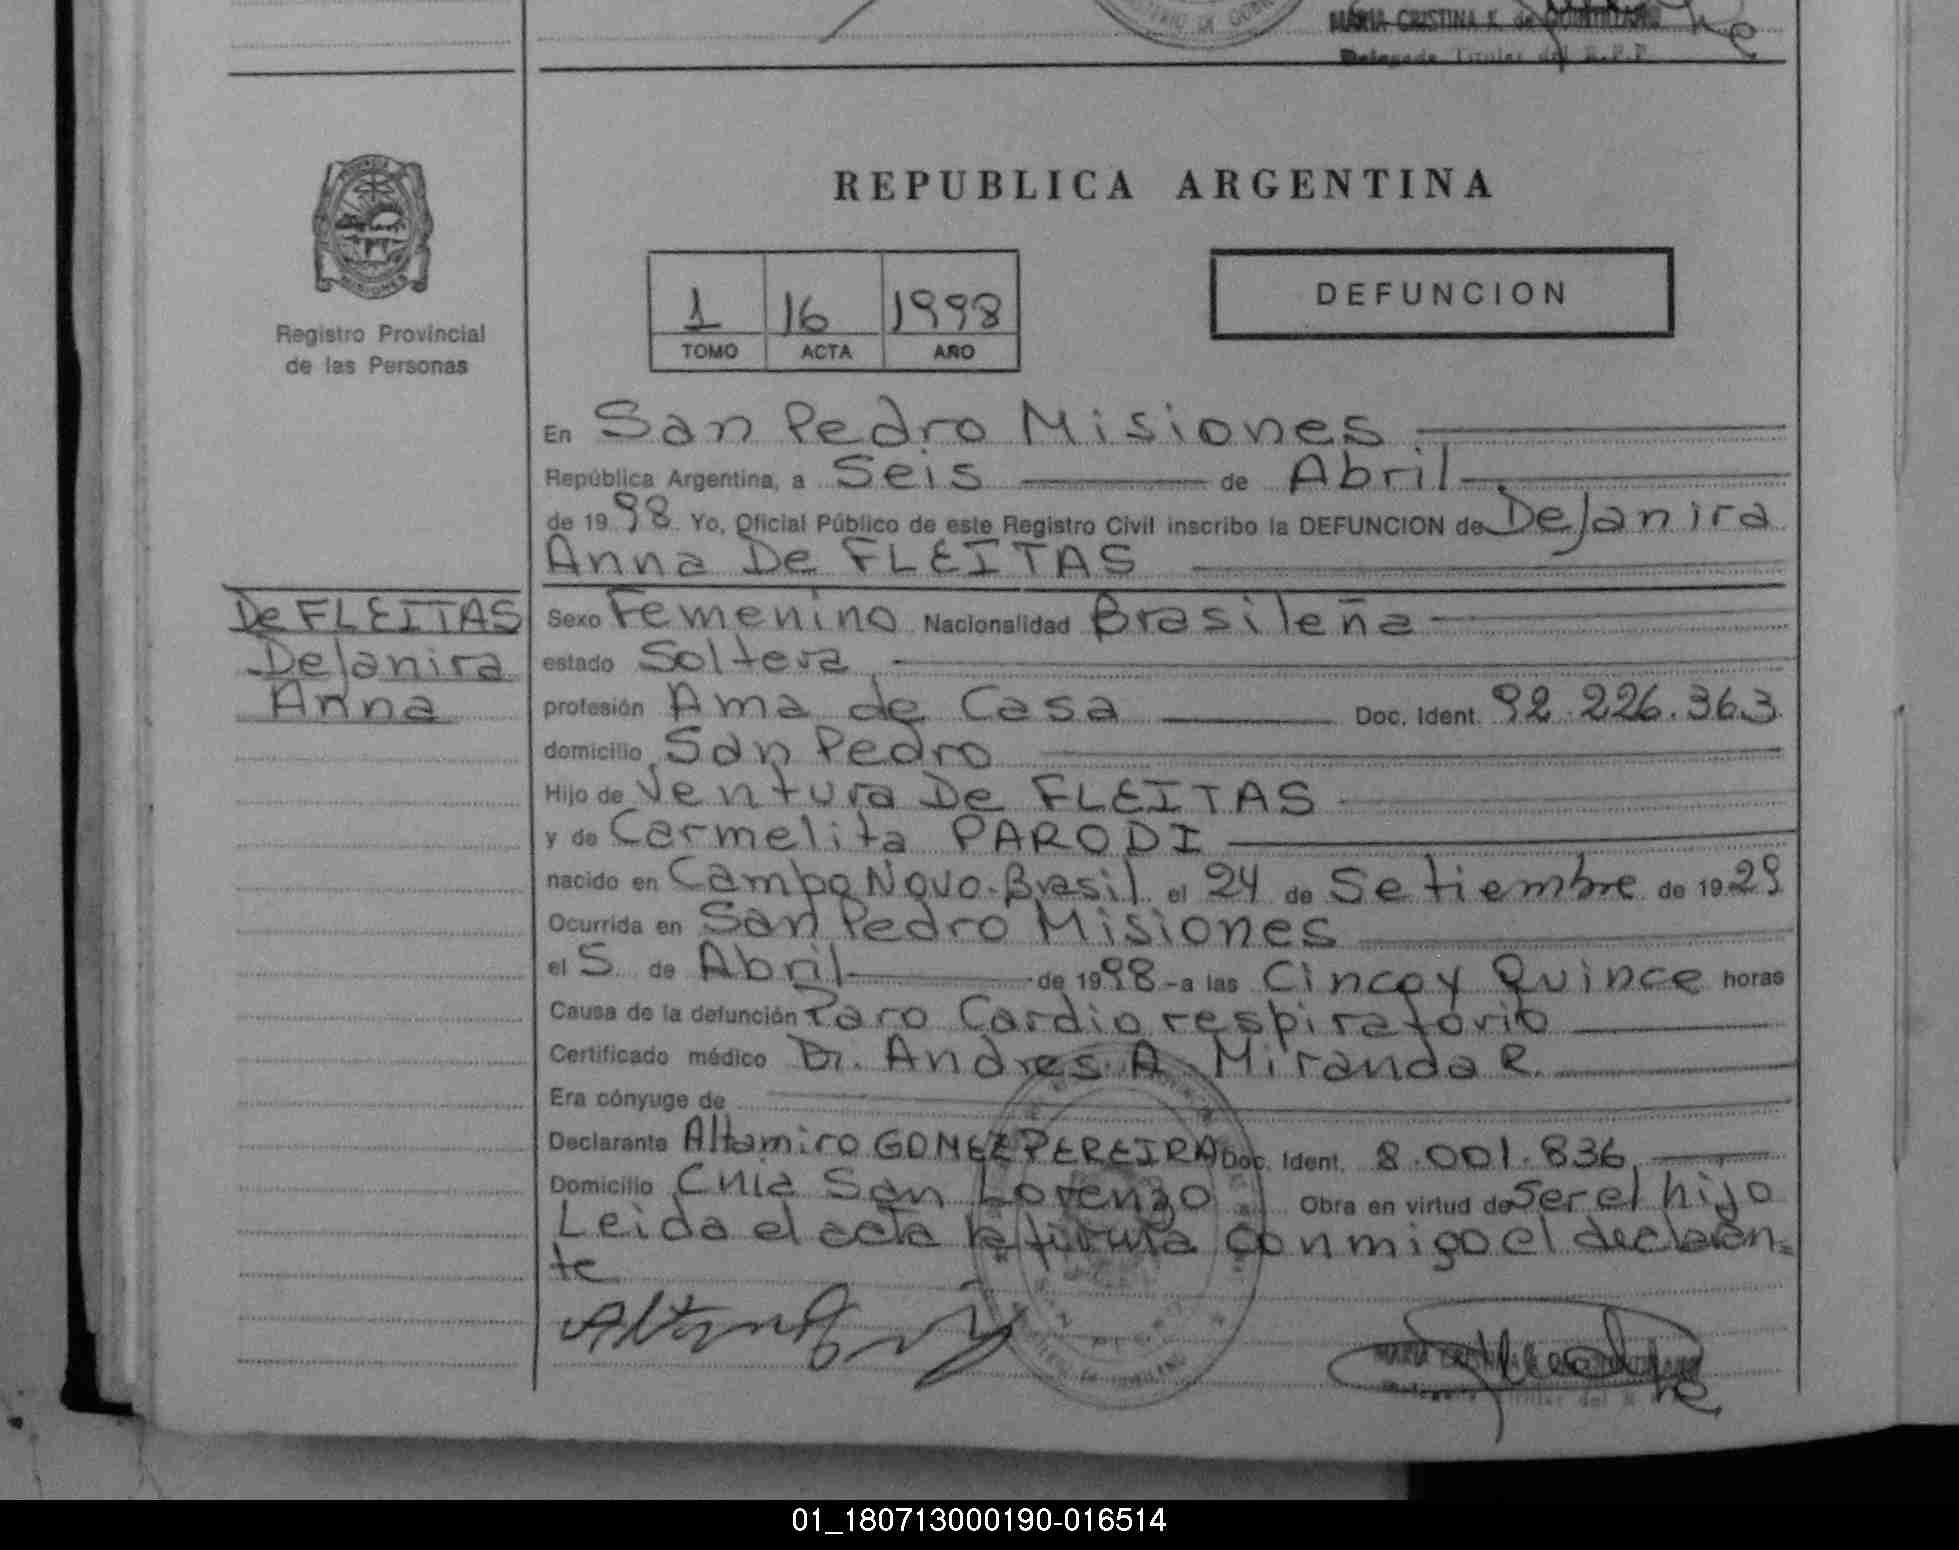 MARIA CRISTINA K. de QUINTITANO
Delegada Titular del R.P.P.
REPUBLICA ARGENTINA
Registro Provincial
de las Personas
1 16 1998
TOMO ACTA AÑO
DEFUNCION
En San Pedro Misiones
República Argentina, a Seis de Abril
de 1998 Yo, Oficial Público de este Registro Civil inscribo la DEFUNCION de Dejanira
Anna De FLEITAS
De FLEITAS
Dejanira
Anna
Sexo Femenino Nacionalidad Brasileña
estado Soltera
profesión Ama de Casa Doc. Ident. 92.226.363
domicilio San Pedro
Hijo de Ventura De FLEITAS
y de Carmelita PARODI
nacido en Campo Novo-Brasil el 24 de Setiembre de 1929
Ocurrida en San Pedro Misiones
el 5 de Abril de 1998 a las Cinco y Quince horas
Causa de la defunción Paro Cardio respiratorio
Certificado médico Dr. Andres A Miranda R.
Era cónyuge de
Declarante Altamiro GOMEZ PEREIRA Doc. Ident. 8.001.836
Domicilio Cnia San Lorenzo Obra en virtud de Ser el hijo
Leida el acta la firma conmigo el declaran=
te
01_180713000190-016514